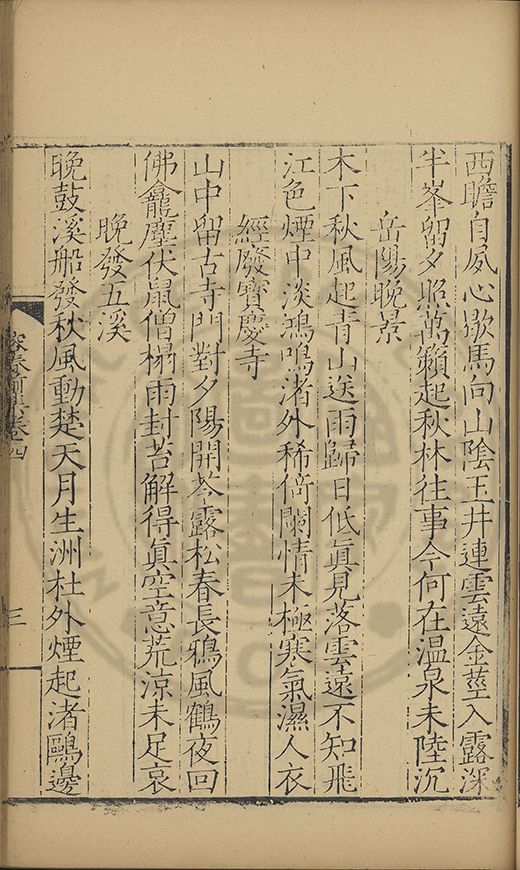 西瞻自夙心歇馬向山陰玉井連雲遠金莖入露深
半峯留夕照萬籟起秋林往事今何在溫泉未陸沉
岳陽晚景
木下秋風起青山送雨歸日低眞見落雲遠不知飛
江色煙中淡鴻鳴渚外稀倚闌情未極寒氣濕人衣
經廢寶慶寺
山中留古寺門對夕陽開苓露松春長鴉風鶴夜回
佛龕塵伏鼠僧榻雨封苔解得眞空意荒涼未足哀
晚發五溪
晚鼓溪船發秋風動楚天月生洲杜外煙起渚鷗邊
卷四
三